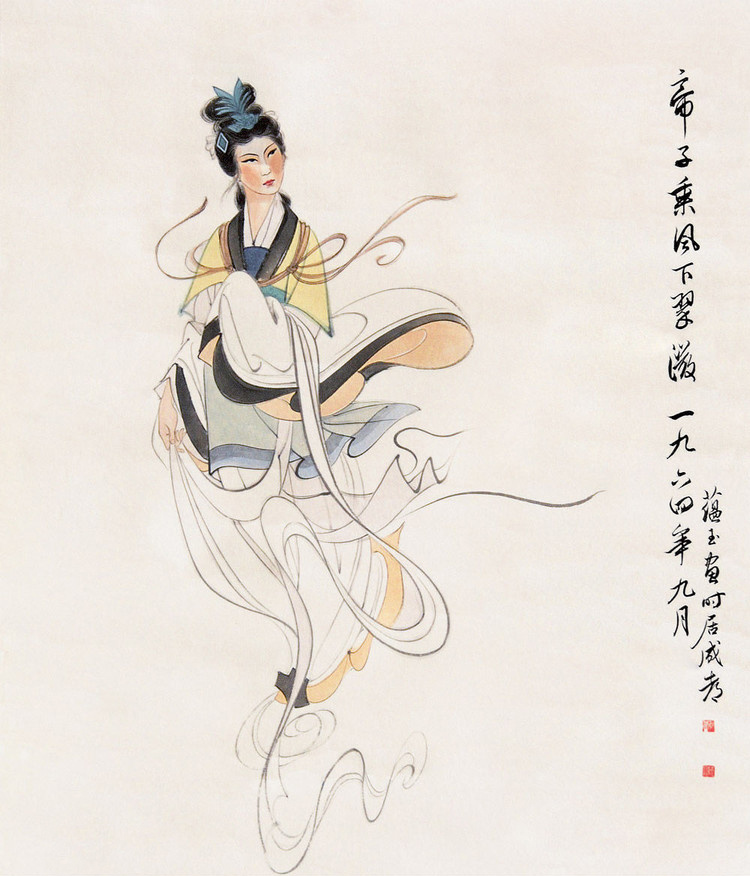 帝子乘风下翠微 一九六四年九月
薀玉画时居成都